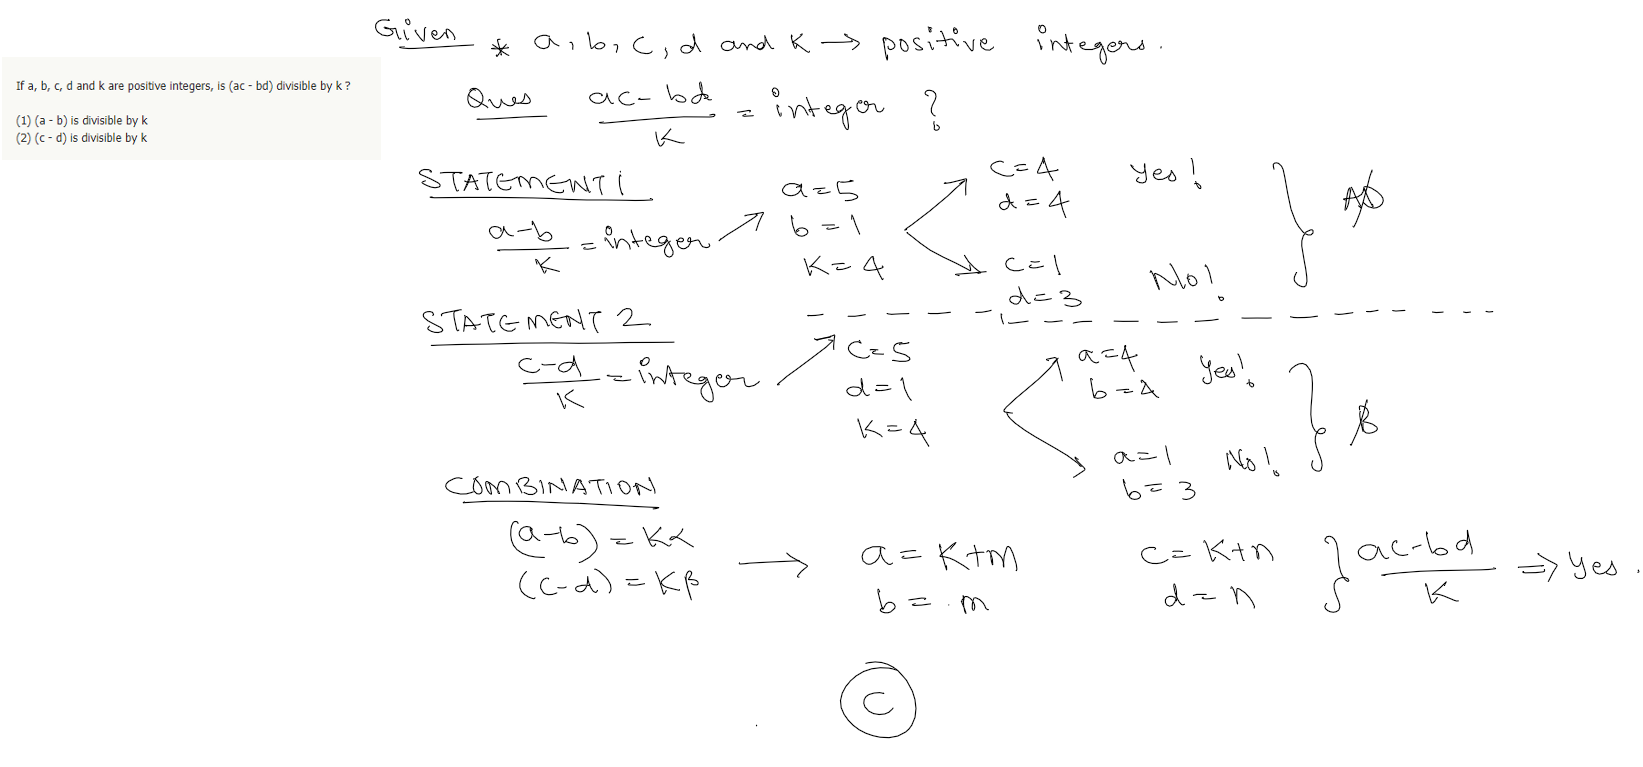 If a, b, c, d and k are positive integers, is (ac - bd) divisible by k ?
(1) (a - b) is divisible by k
(2) (c - d) is divisible by k
Given * a, b, c, d and K → positive integers.
Ques ac-bd/K = integer ?
STATEMENT 1
a-b/K = integer → a=5 b=1 K=4
c=4 d=4 Yes!
c=1 d=3 No!
AD
STATEMENT 2
c-d/K = integer → c=5 d=1 K=4
a=4 b=4 Yes!
a=1 b=3 No!
B
COMBINATION
(a-b) = Kα
(c-d) = Kβ
→ a = K+m c = K+n } ac-bd/K ⇒ yes.
b = m d = n
C